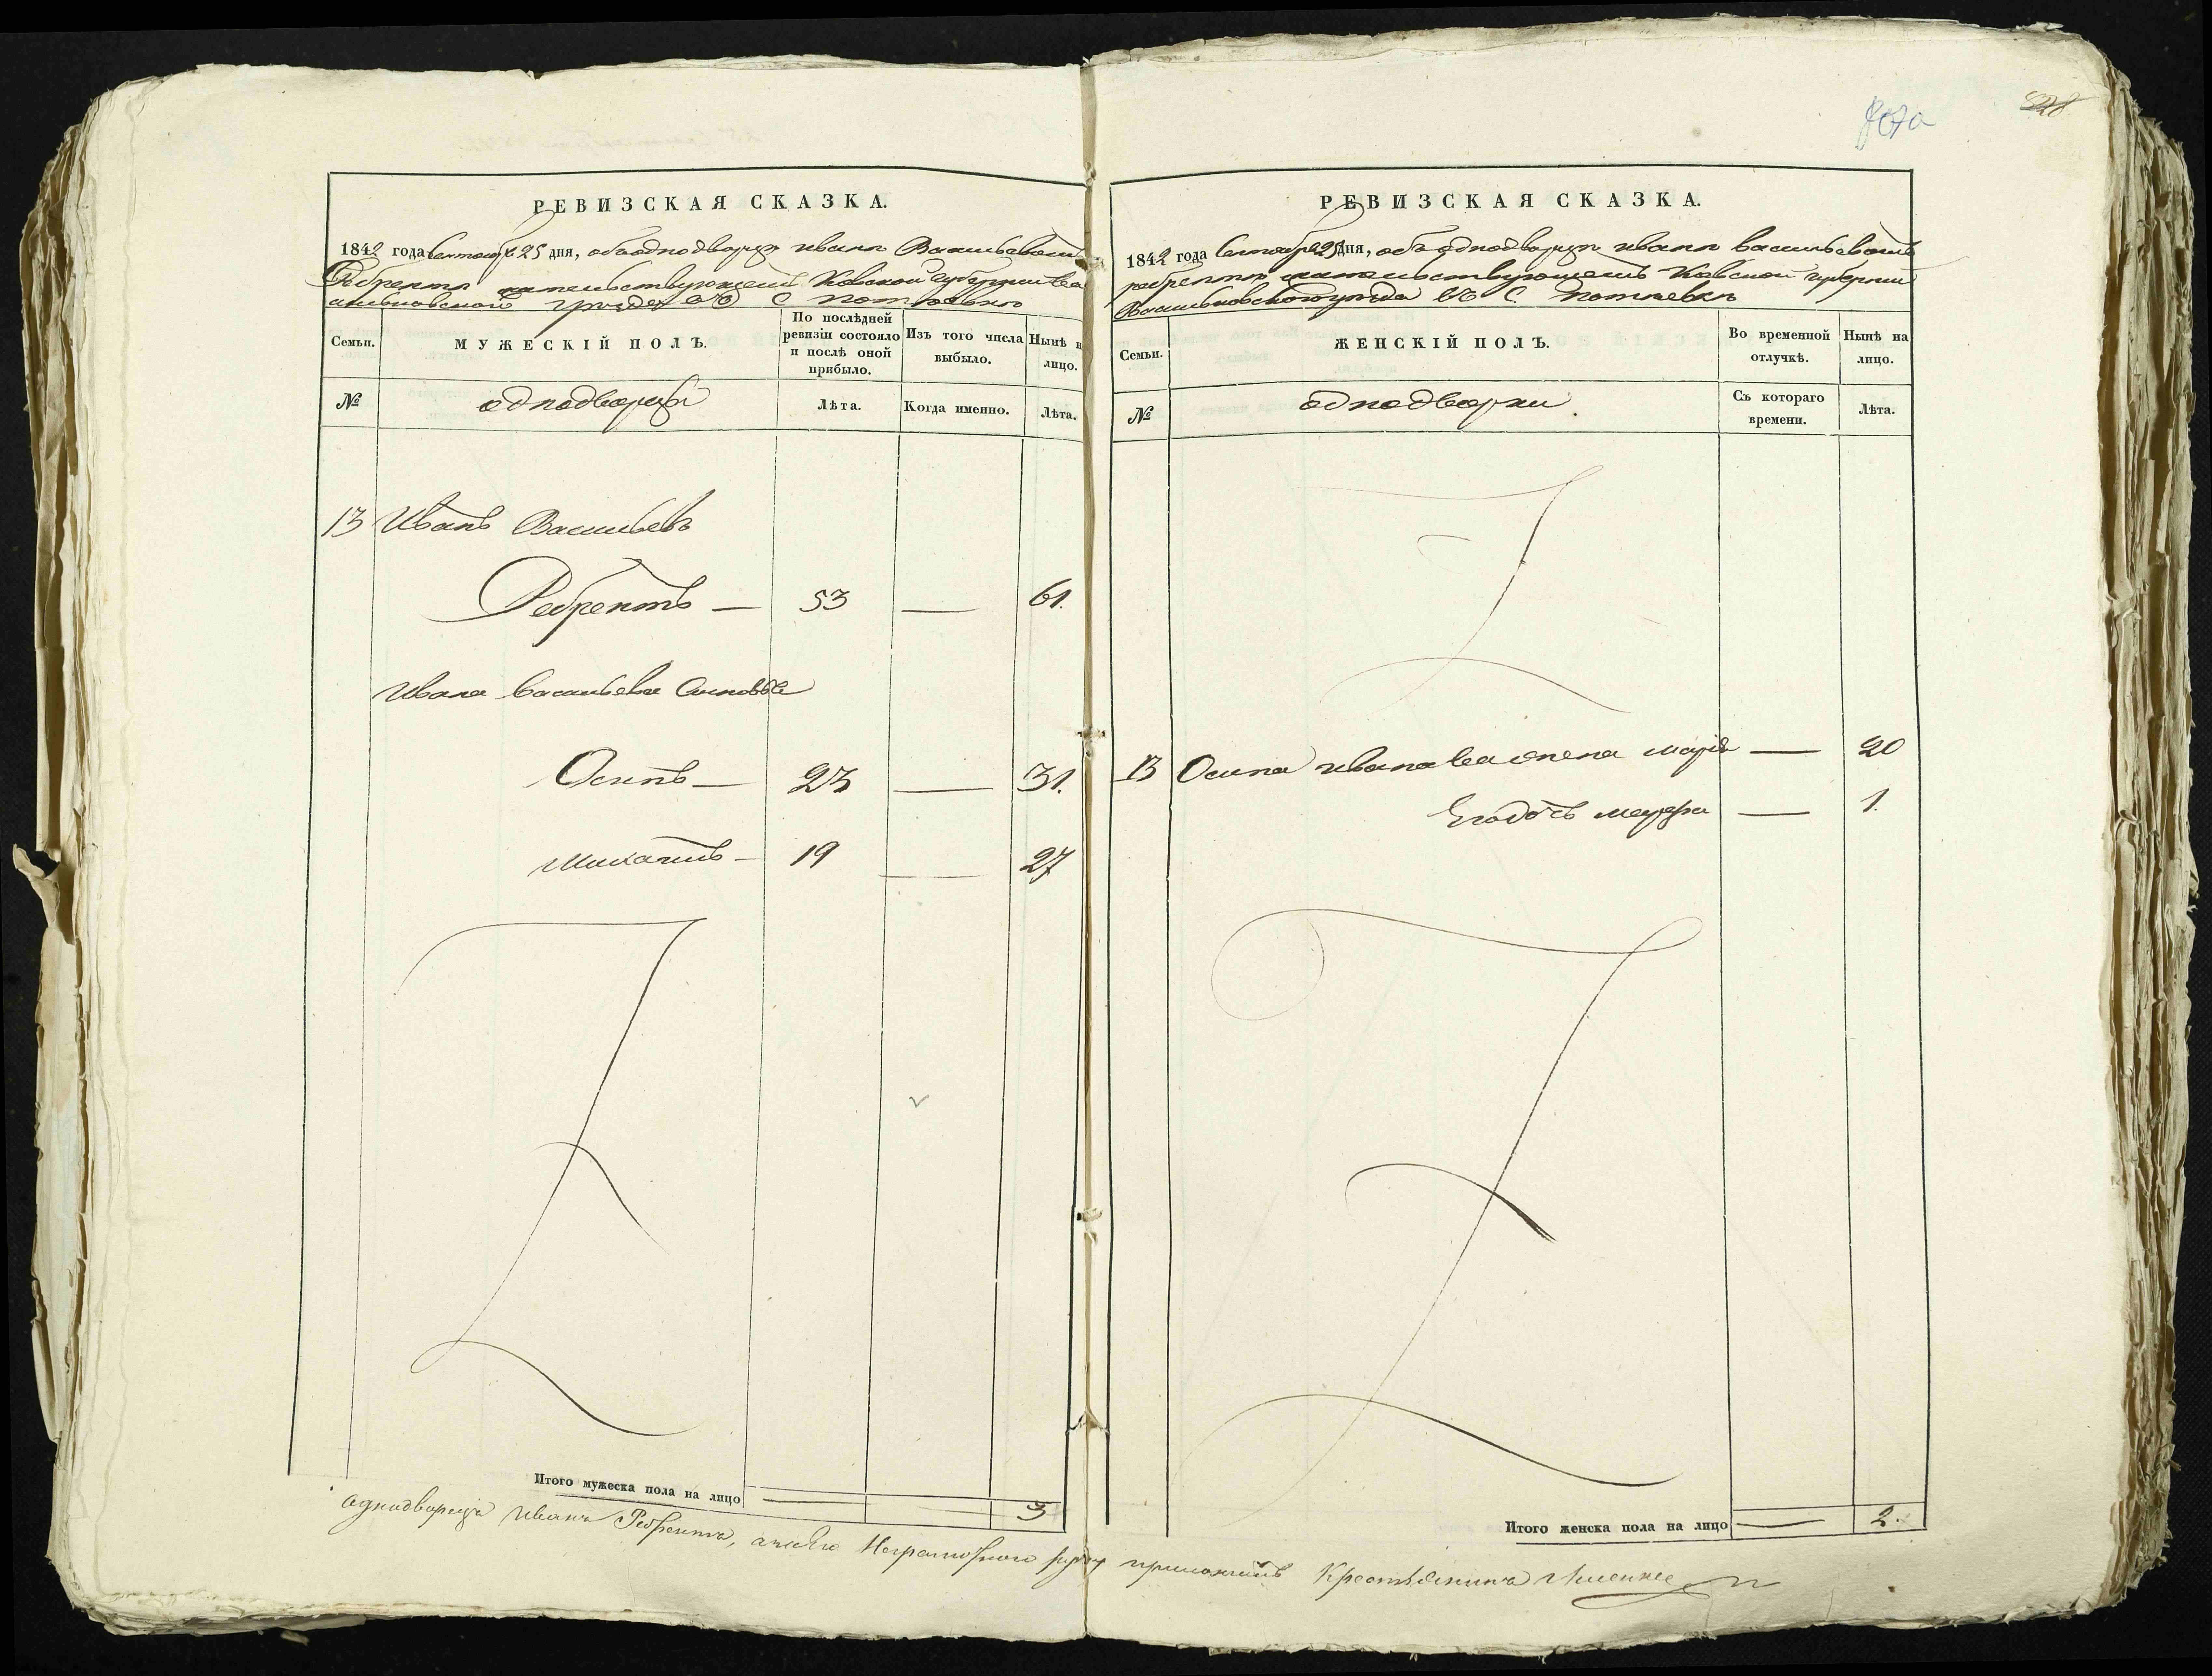 807а
РЕВИЗСКАЯ СКАЗКА.
1842 года Сентября 25 дня, объ однодворцѣ Иванѣ Васильевомъ
Ребрентѣ жительствующемъ Киевской Губернии Ва
сильковского уѣзда въ С
Семьи.
МУЖЕСКІЙ ПОЛЪ.
По послѣдней ревизіи состояло и послѣ оной прибыло.
Изъ того числа выбыло.
Нынѣ на лицо.
№
однодворцы
Лѣта.
Когда именно.
Лѣта.
13 Иванъ Васильевъ
Ребрентъ — 53 — 61.
Ивана Васильева Сыновья
Осипъ — 23 — 31.
Михаилъ — 19 — 27
Итого мужеска пола на лицо — 3
РЕВИЗСКАЯ СКАЗКА.
1842 года Сентября 25 дня, объ однодворцѣ Иванѣ Васильевомъ
Ребрентѣ жительствующемъ Киевской губернии
Васильковского уѣзда въ С.
Семьи.
ЖЕНСКІЙ ПОЛЪ.
Во временной отлучкѣ.
Нынѣ на лицо.
№
однодворки.
Съ котораго времени.
Лѣта.
13 Осипа Иванова жена Марія — 20
Его дочь — 1.
Итого женска пола на лицо — 2.
Однодворецъ Иванъ Ребрентъ, а неграмотного руку приложилъ Крестьянинъ